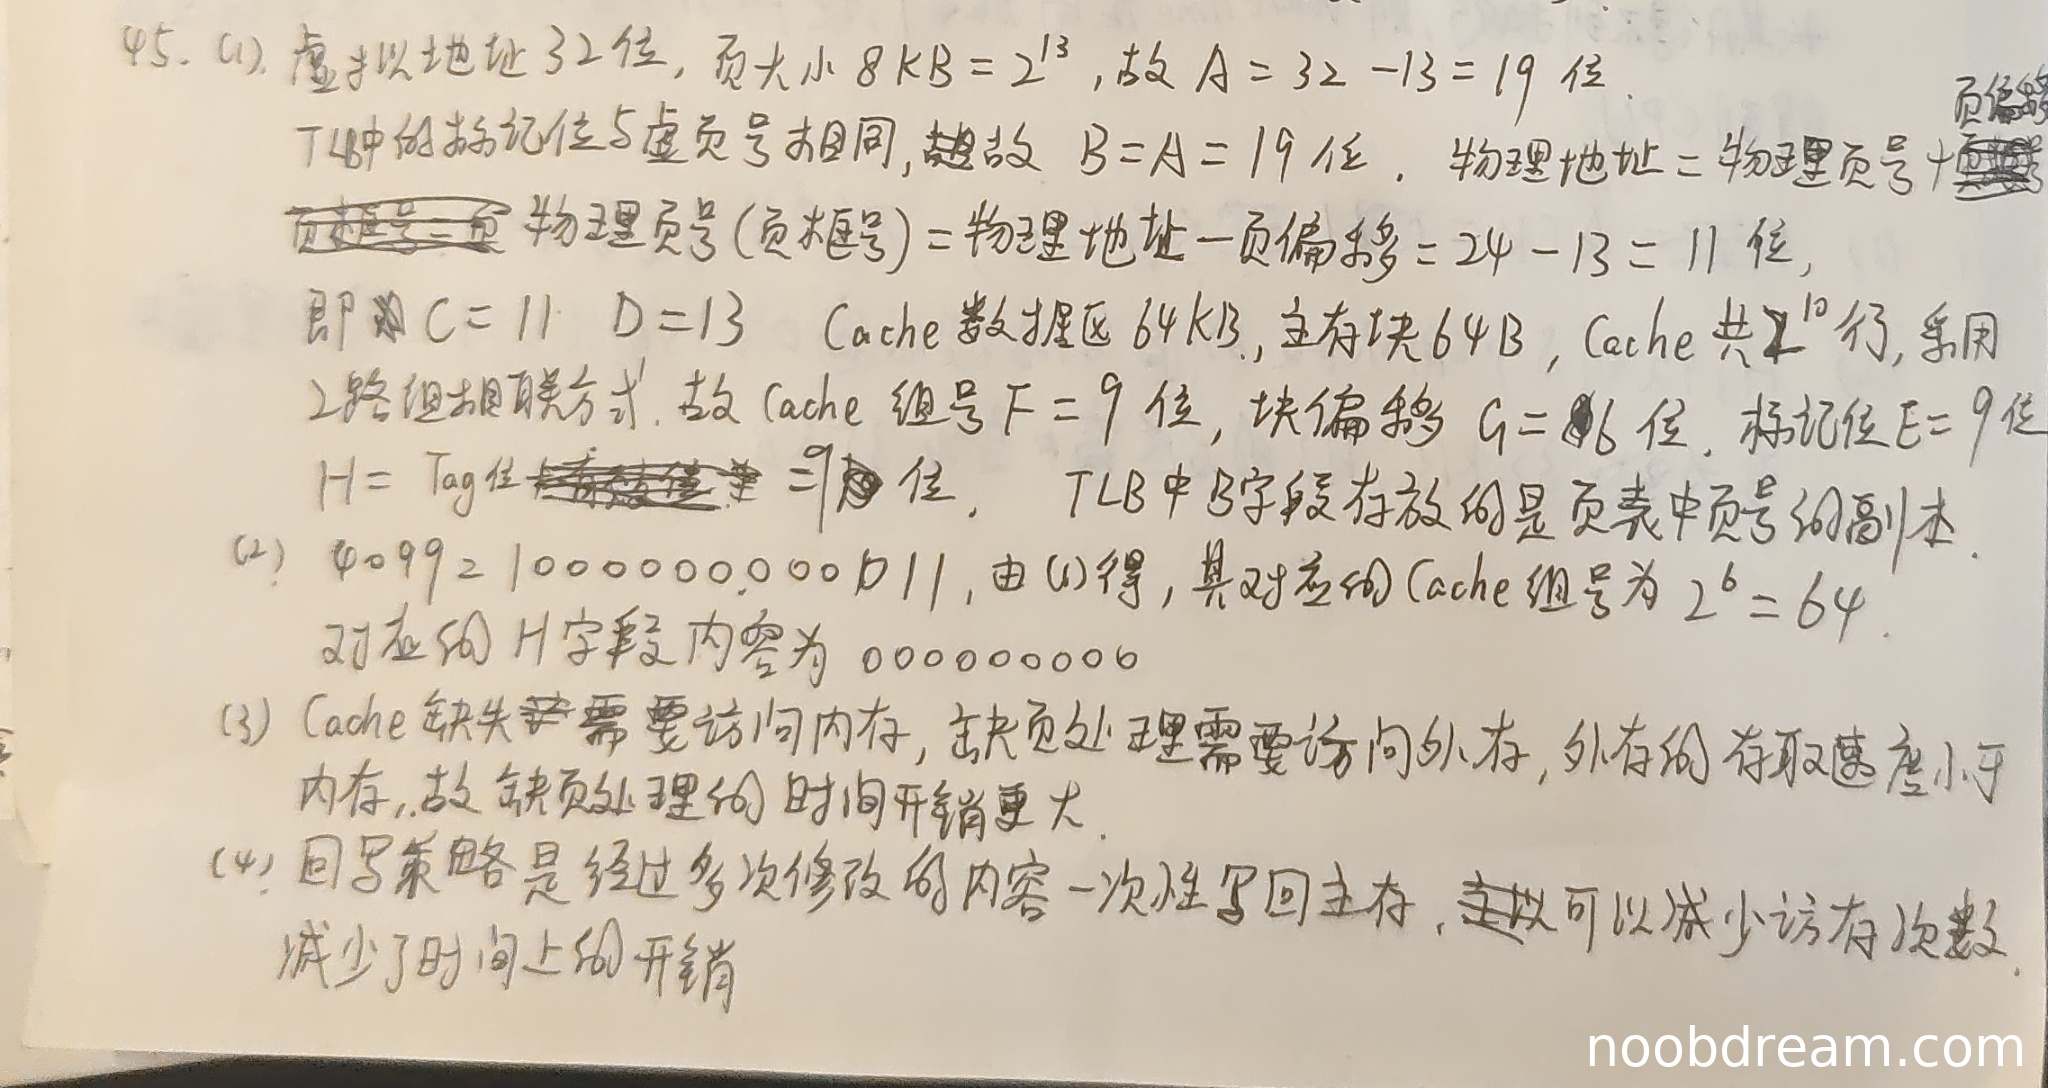 45. (1). 虚拟地址32位, 页大小 8KB = 2^13, 故 A = 32 - 13 = 19 位.
页偏移
TLB中的标记位与虚页号相同, 故 B = A = 19 位. 物理地址 = 物理页号 +
物理页号(页框号) = 物理地址 - 页偏移 = 24 - 13 = 11 位,
即 C = 11 D = 13 Cache 数据区 64KB, 主存块 64B, Cache 共 2^10 行, 采用
2路组相联方式. 故 Cache 组号 F = 9 位, 块偏移 G = 6 位. 标记位 E = 9 位
H = Tag位 = 9 位. TLB中B字段存放的是页表中页号的副本.
(2) 4099 = 1000000000011, 由(1)得, 其对应的Cache组号为 2^6 = 64.
对应的 H 字段内容为 000000000
(3) Cache 缺失需要访问内存, 缺页处理需要访问外存, 外存的存取速度小于
内存, 故缺页处理的时间开销更大.
(4). 回写策略是经过多次修改的内容一次性写回主存, 可以减少访存次数.
减少了时间上的开销
noobdream.com